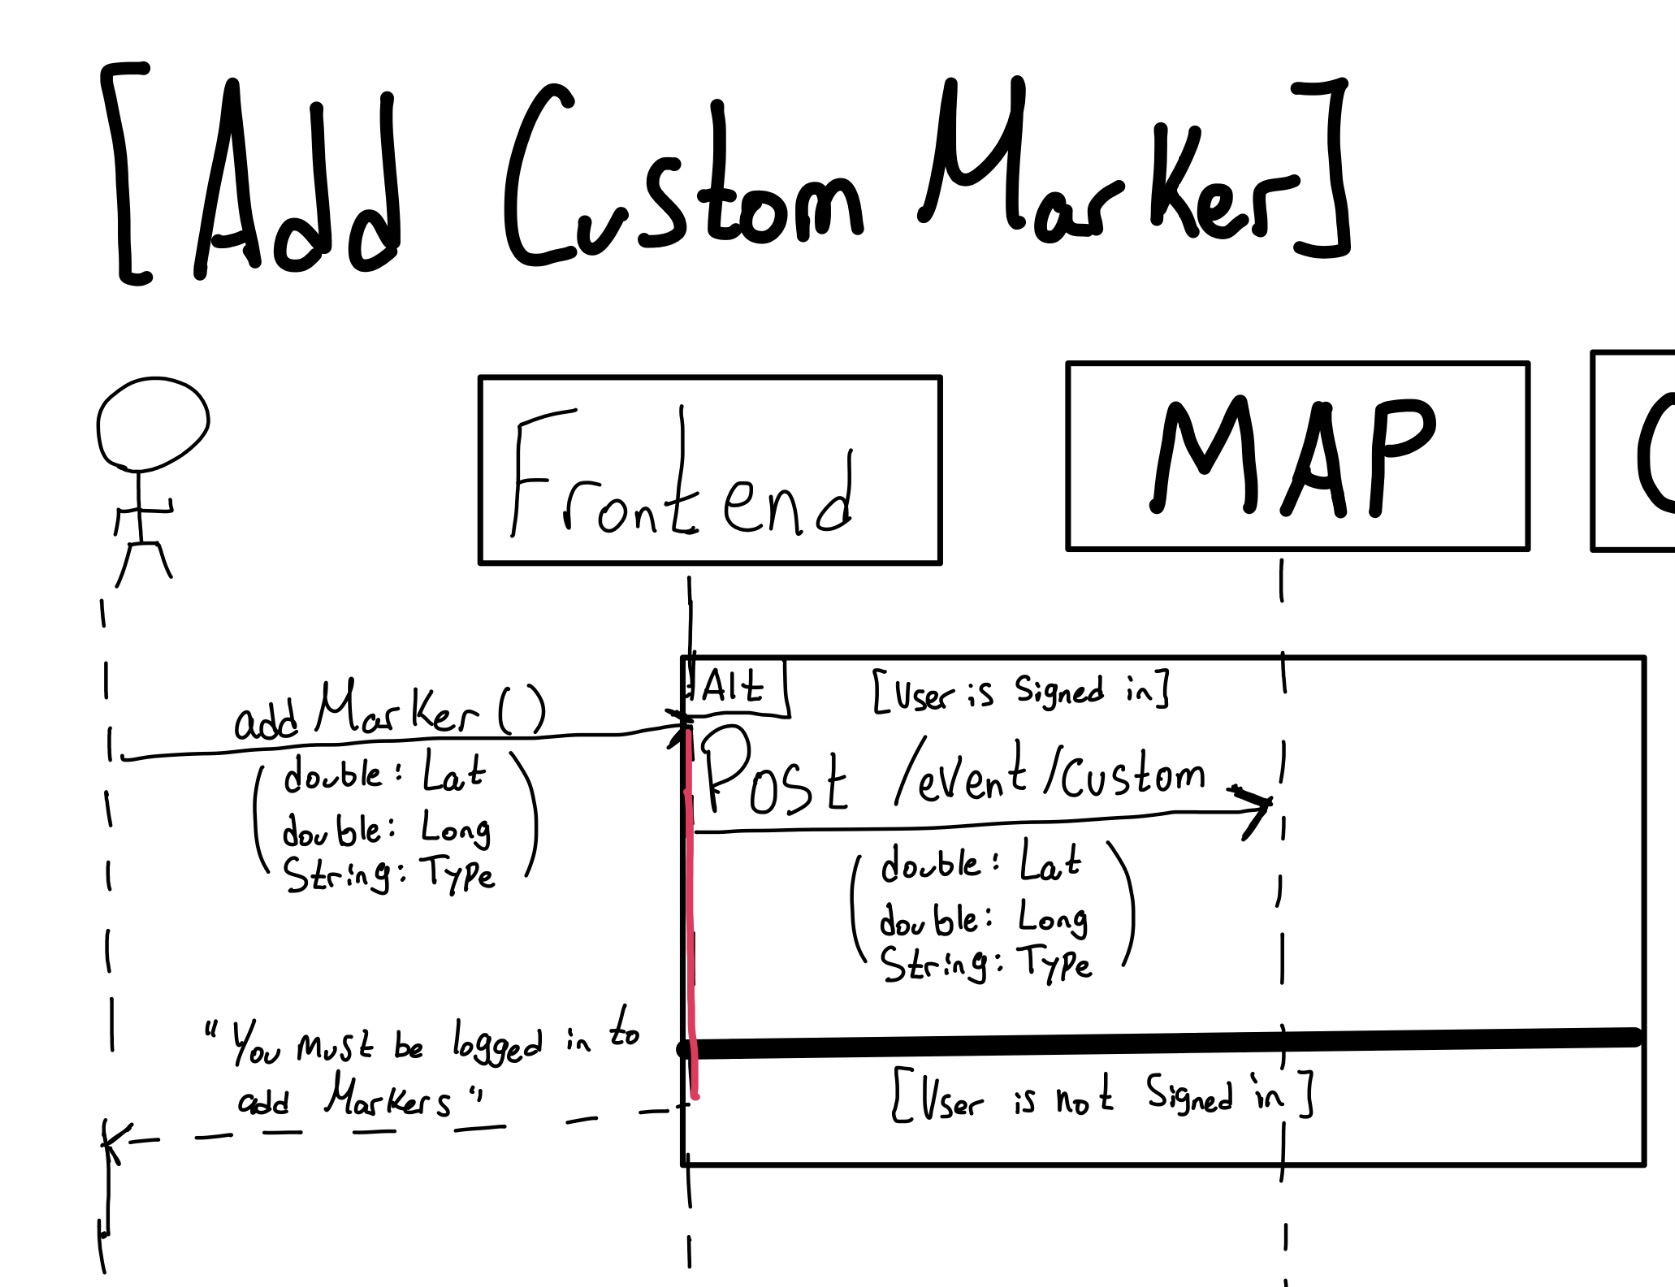 [Add Custom Marker]
Frontend
MAP
Alt
[User is Signed in]
addMarker()
Post /event/custom
(double: Lat
double: Long
String: Type)
(double: Lat
double: Long
String: Type)
"You must be logged in to
add Markers"
[User is not Signed in]